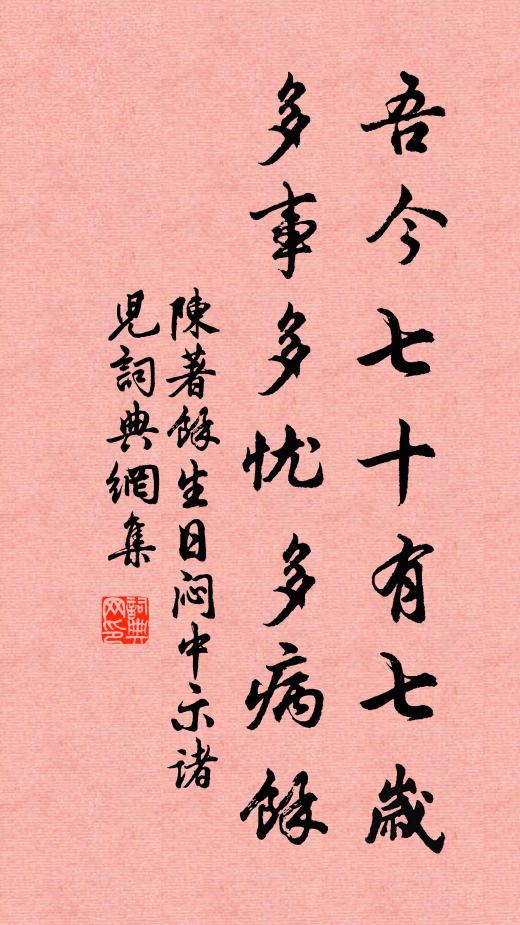 吾今七十有七歲
多事多忧多病餘
陳著餘生日闷中示诸
児詞典網集
詞典
网印